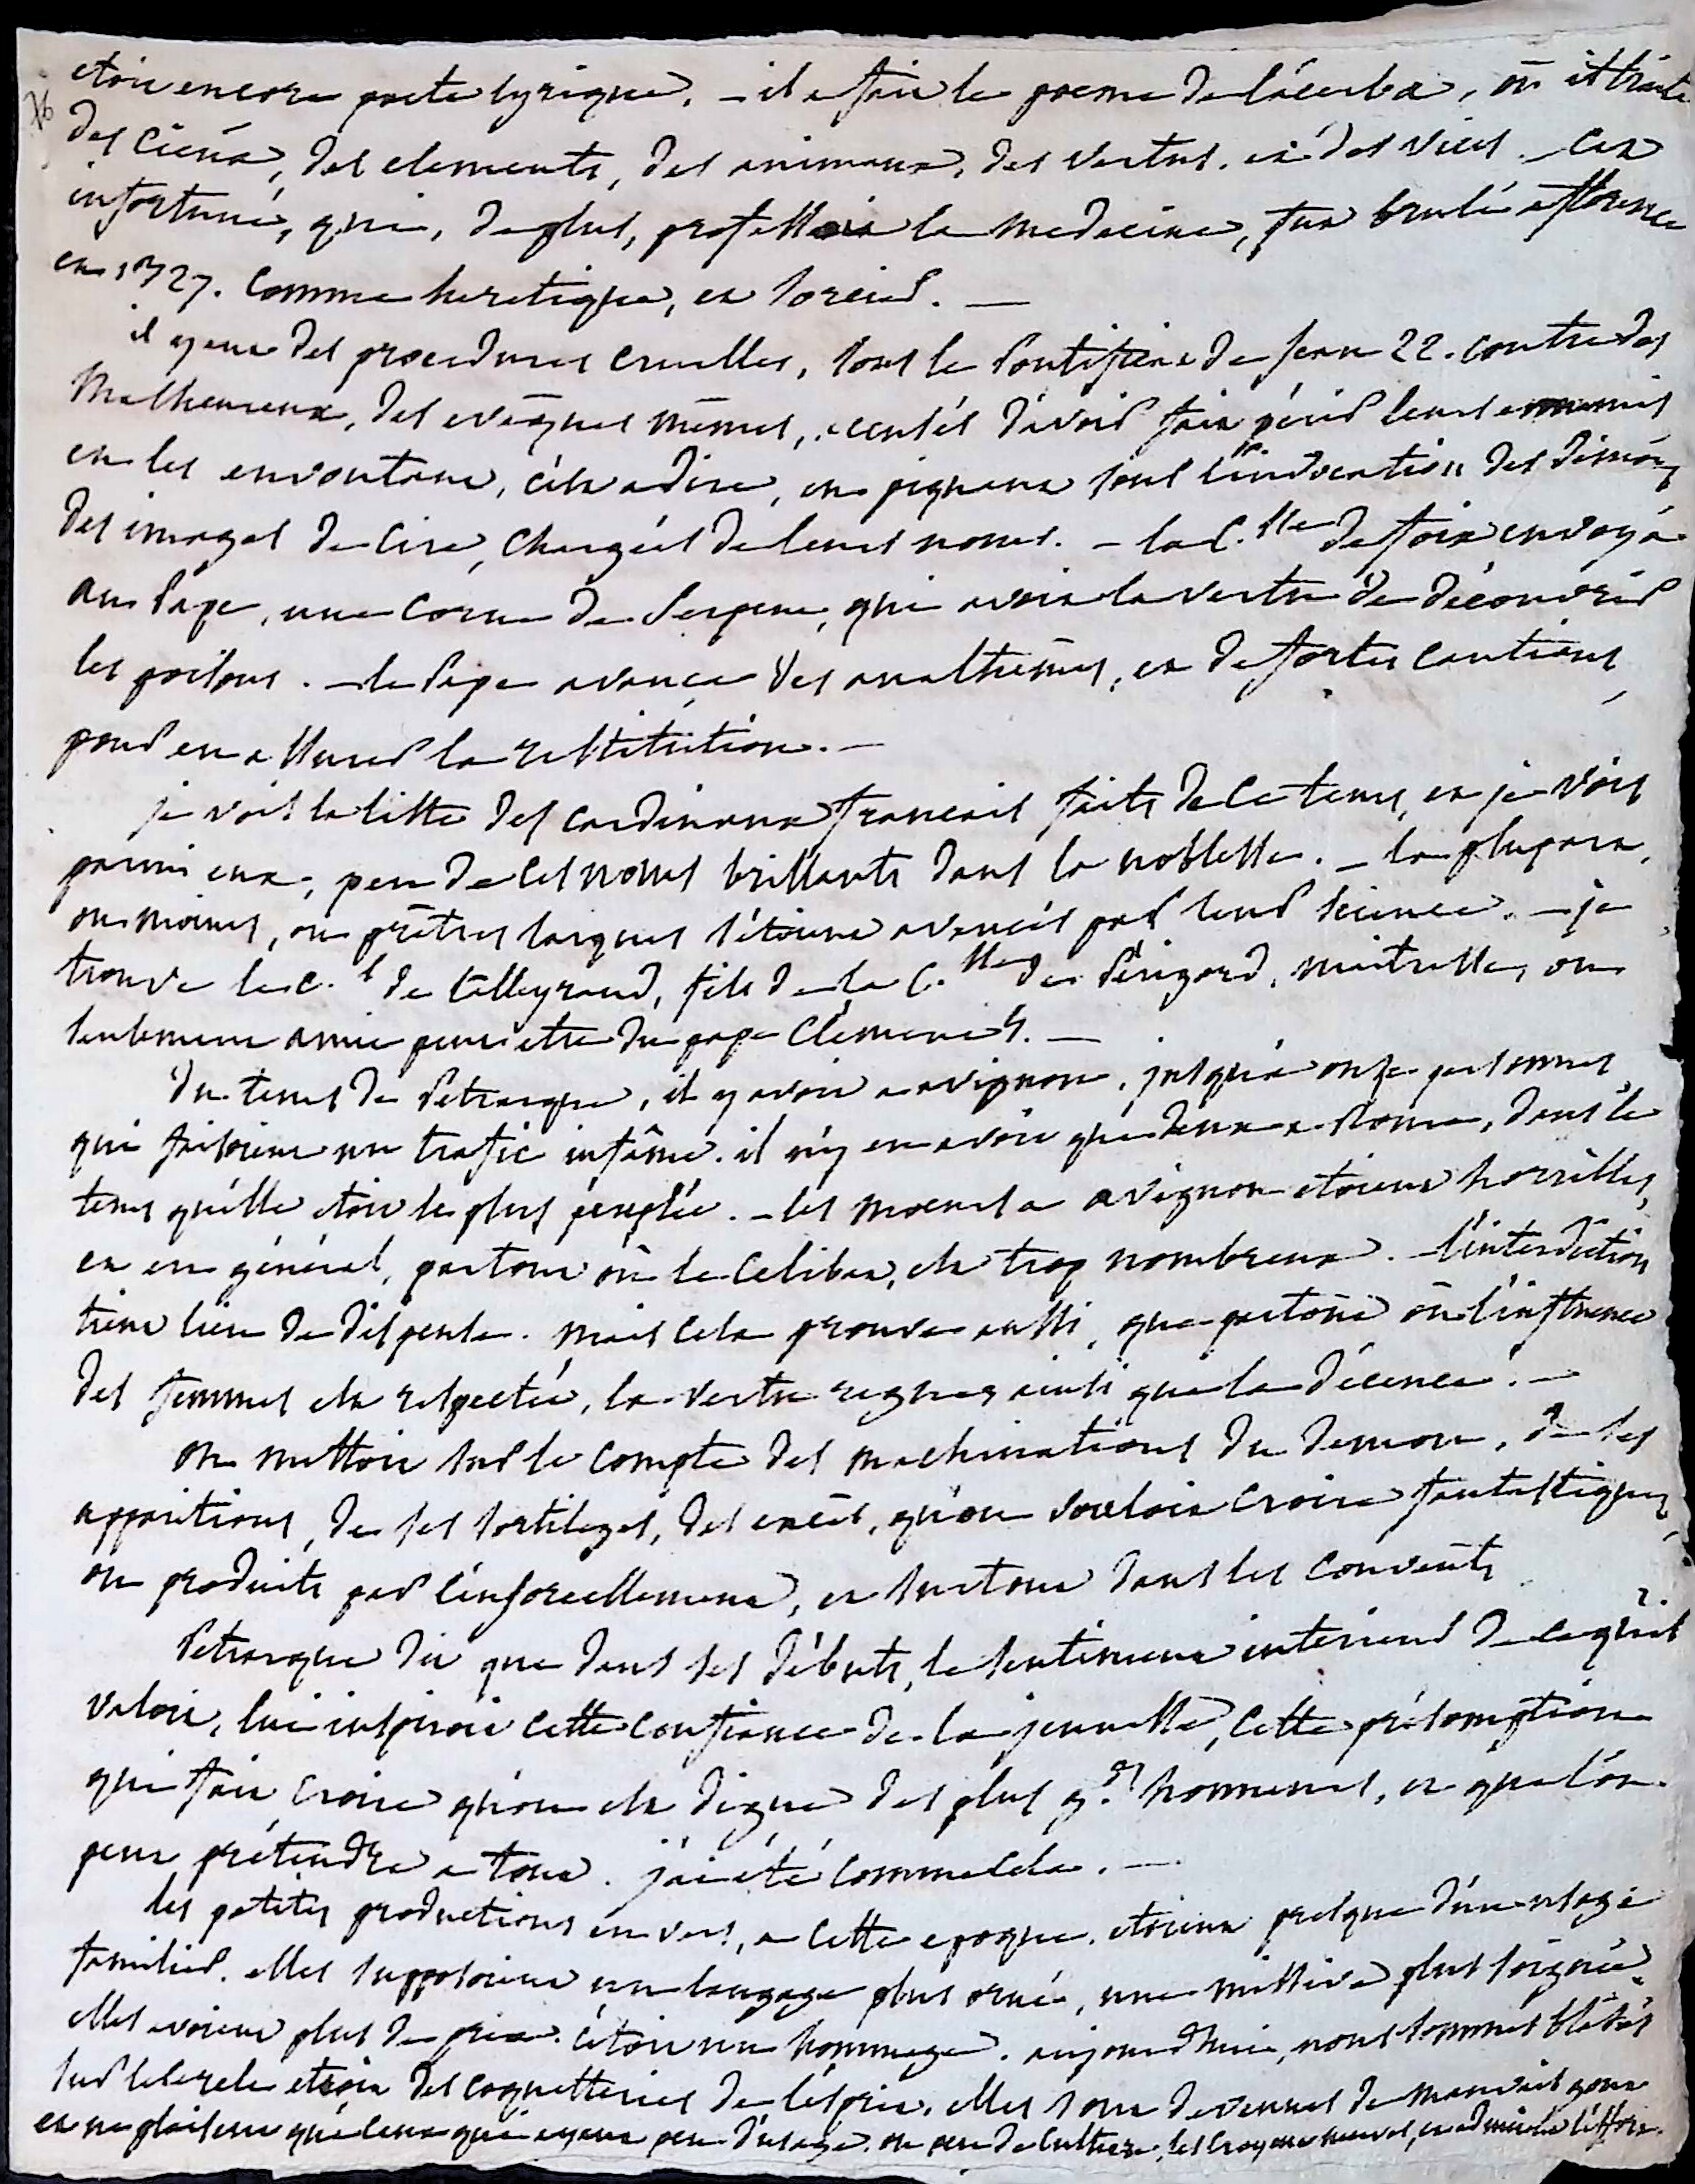 etoit encore poete lyrique. - il a fait le poeme de l'acerba, où il traite
des cieux, des elements, des animaux, des vertus, et des vices. - cet
infortuné, qui, de plus, professoit la medecine, fut brulé a florence
en 1327. comme heretique, et sorcier. —
il y eut des procedures cruelles, sous le Pontificat de Jean 22. contre des
malheureux, des evêques mêmes, accusés d'avoir fait périr leurs ennemis
en les envoutant, c'est a dire, en piquant sous l'invocation des démons
des images de cire, chargées de leurs noms. - la C.sse de foix envoya
au Pape, une corne de serpent, qui avoit la vertu de découvrir
les poisons. - le Pape avança des anathêmes, et de fortes cautions,
pour en assurer la restitution. —
je vois la liste des cardinaux francais faits de ce tems, et je vois
parmi eux, peu de ces noms brillants dans la noblesse. - la plupart,
ou moines, ou prêtres laiques s'étoient avancés par leur science. - je
trouve le c.l de talleyrand, fils de la C.sse de Périgord, maitresse, ou
seulement amie peut etre du pape Clement 5. —
du tems de Petrarque, il y avoit a avignon, jusqu'a onze personnes
qui faisoient un trafic infâme. il n'y en avoit que deux a Rome, dans le
tems qu'elle etoit le plus peuplée. - les moeurs a avignon etoient horribles,
et en général, partout où le celibat, est trop nombreux. - l'interdiction
tient lieu de dispense. mais cela prouve aussi, que partout où l'influence
des femmes est respectée, la vertu regne, ainsi que la décence. —
on mettoit sur le compte des machinations du demon, de ses
apparitions, de ses sortileges, des excès, qu'on vouloit croire fantastiques,
ou produits par l'ensorcellement, et surtout dans les couvents
Petrarque dit que dans ses débuts, le sentiment interieur de ce qu'il
valoit, lui inspiroit cette confiance de la jeunesse, cette présomption
qui fait croire qu'on est digne des plus g.ds honneurs, et que l'on
peut prétendre a tout. j'ai été comme cela. —
les petites productions en vers, a cette epoque, etoient presque d'un usage
familier. elles supposoient un langage plus orné, une missive plus soignée.
elles avoient plus de prix. c'étoit un hommage. aujourd'hui, nous sommes blasés
sur le cercle etroit des coquetteries de l'esprit. elles sont devenues de mauvais gout
et ne plaisent qu'a ceux qui ayant peu d'usage, ou peu de culture, les croyent neuves, et admirent l'effort.